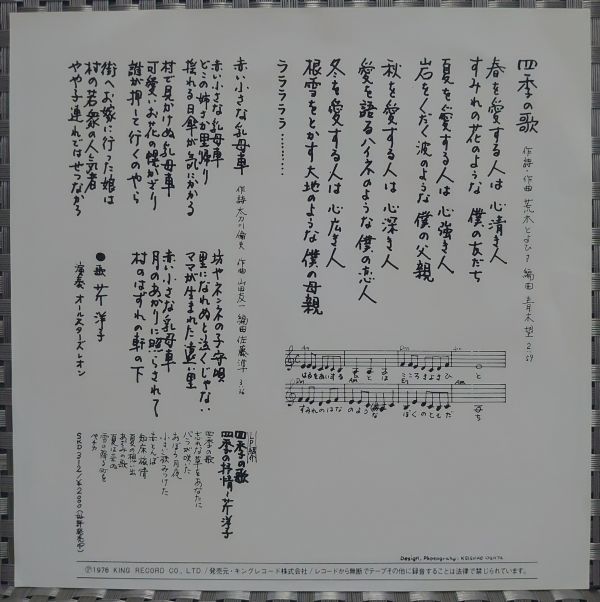 四季の歌 作詩・作曲 荒木とよひさ 編曲 青木望 2:59
春を愛する人は 心清き人
すみれの花のような 僕の友だち
夏を愛する人は 心強き人
岩をくだく波のような 僕の父親
秋を愛する人は 心深き人
愛を語るハイネのような 僕の恋人
冬を愛する人は 心広き人
根雪をとかす大地のような 僕の母親
ラララララ………
はるをあいする ひとは こころきよきひ と
すみれのはな のような ぼくのともだ ち
赤い小さな乳母車 作詩 太刀川倫夫 作曲 山田友一 編曲 佐藤洋 3:16
赤い小さな乳母車
どこの姉さか里帰り
揺れる日傘が気にかかる
村で見かけぬ乳母車
可愛いお花の襟かざり
誰が押して行くのやら
街へお嫁に行った娘は
村の若衆の人気者
やや子連れではせつなかろ
坊やネンネの子守唄
里になれぬと泣くじゃない
ママが生まれた遠い里
赤い小さな乳母車
月のあかりに照らされて
村のはずれの軒の下
●歌 芹洋子
演奏 オールスターズ・レオン
四季の歌
四季の抒情~芹洋子
四季の歌
忘れな草をあなたに
おぼろ月夜
小さい秋みつけた
赤とんぼ
知床旅情
夏の想い出
雪の降る町を
ペチカ
Design, Photography.
℗1976 KING RECORD CO., LTD./発売元・キングレコード株式会社/レコードから無断でテープその他に録音することは法律で禁じられています。